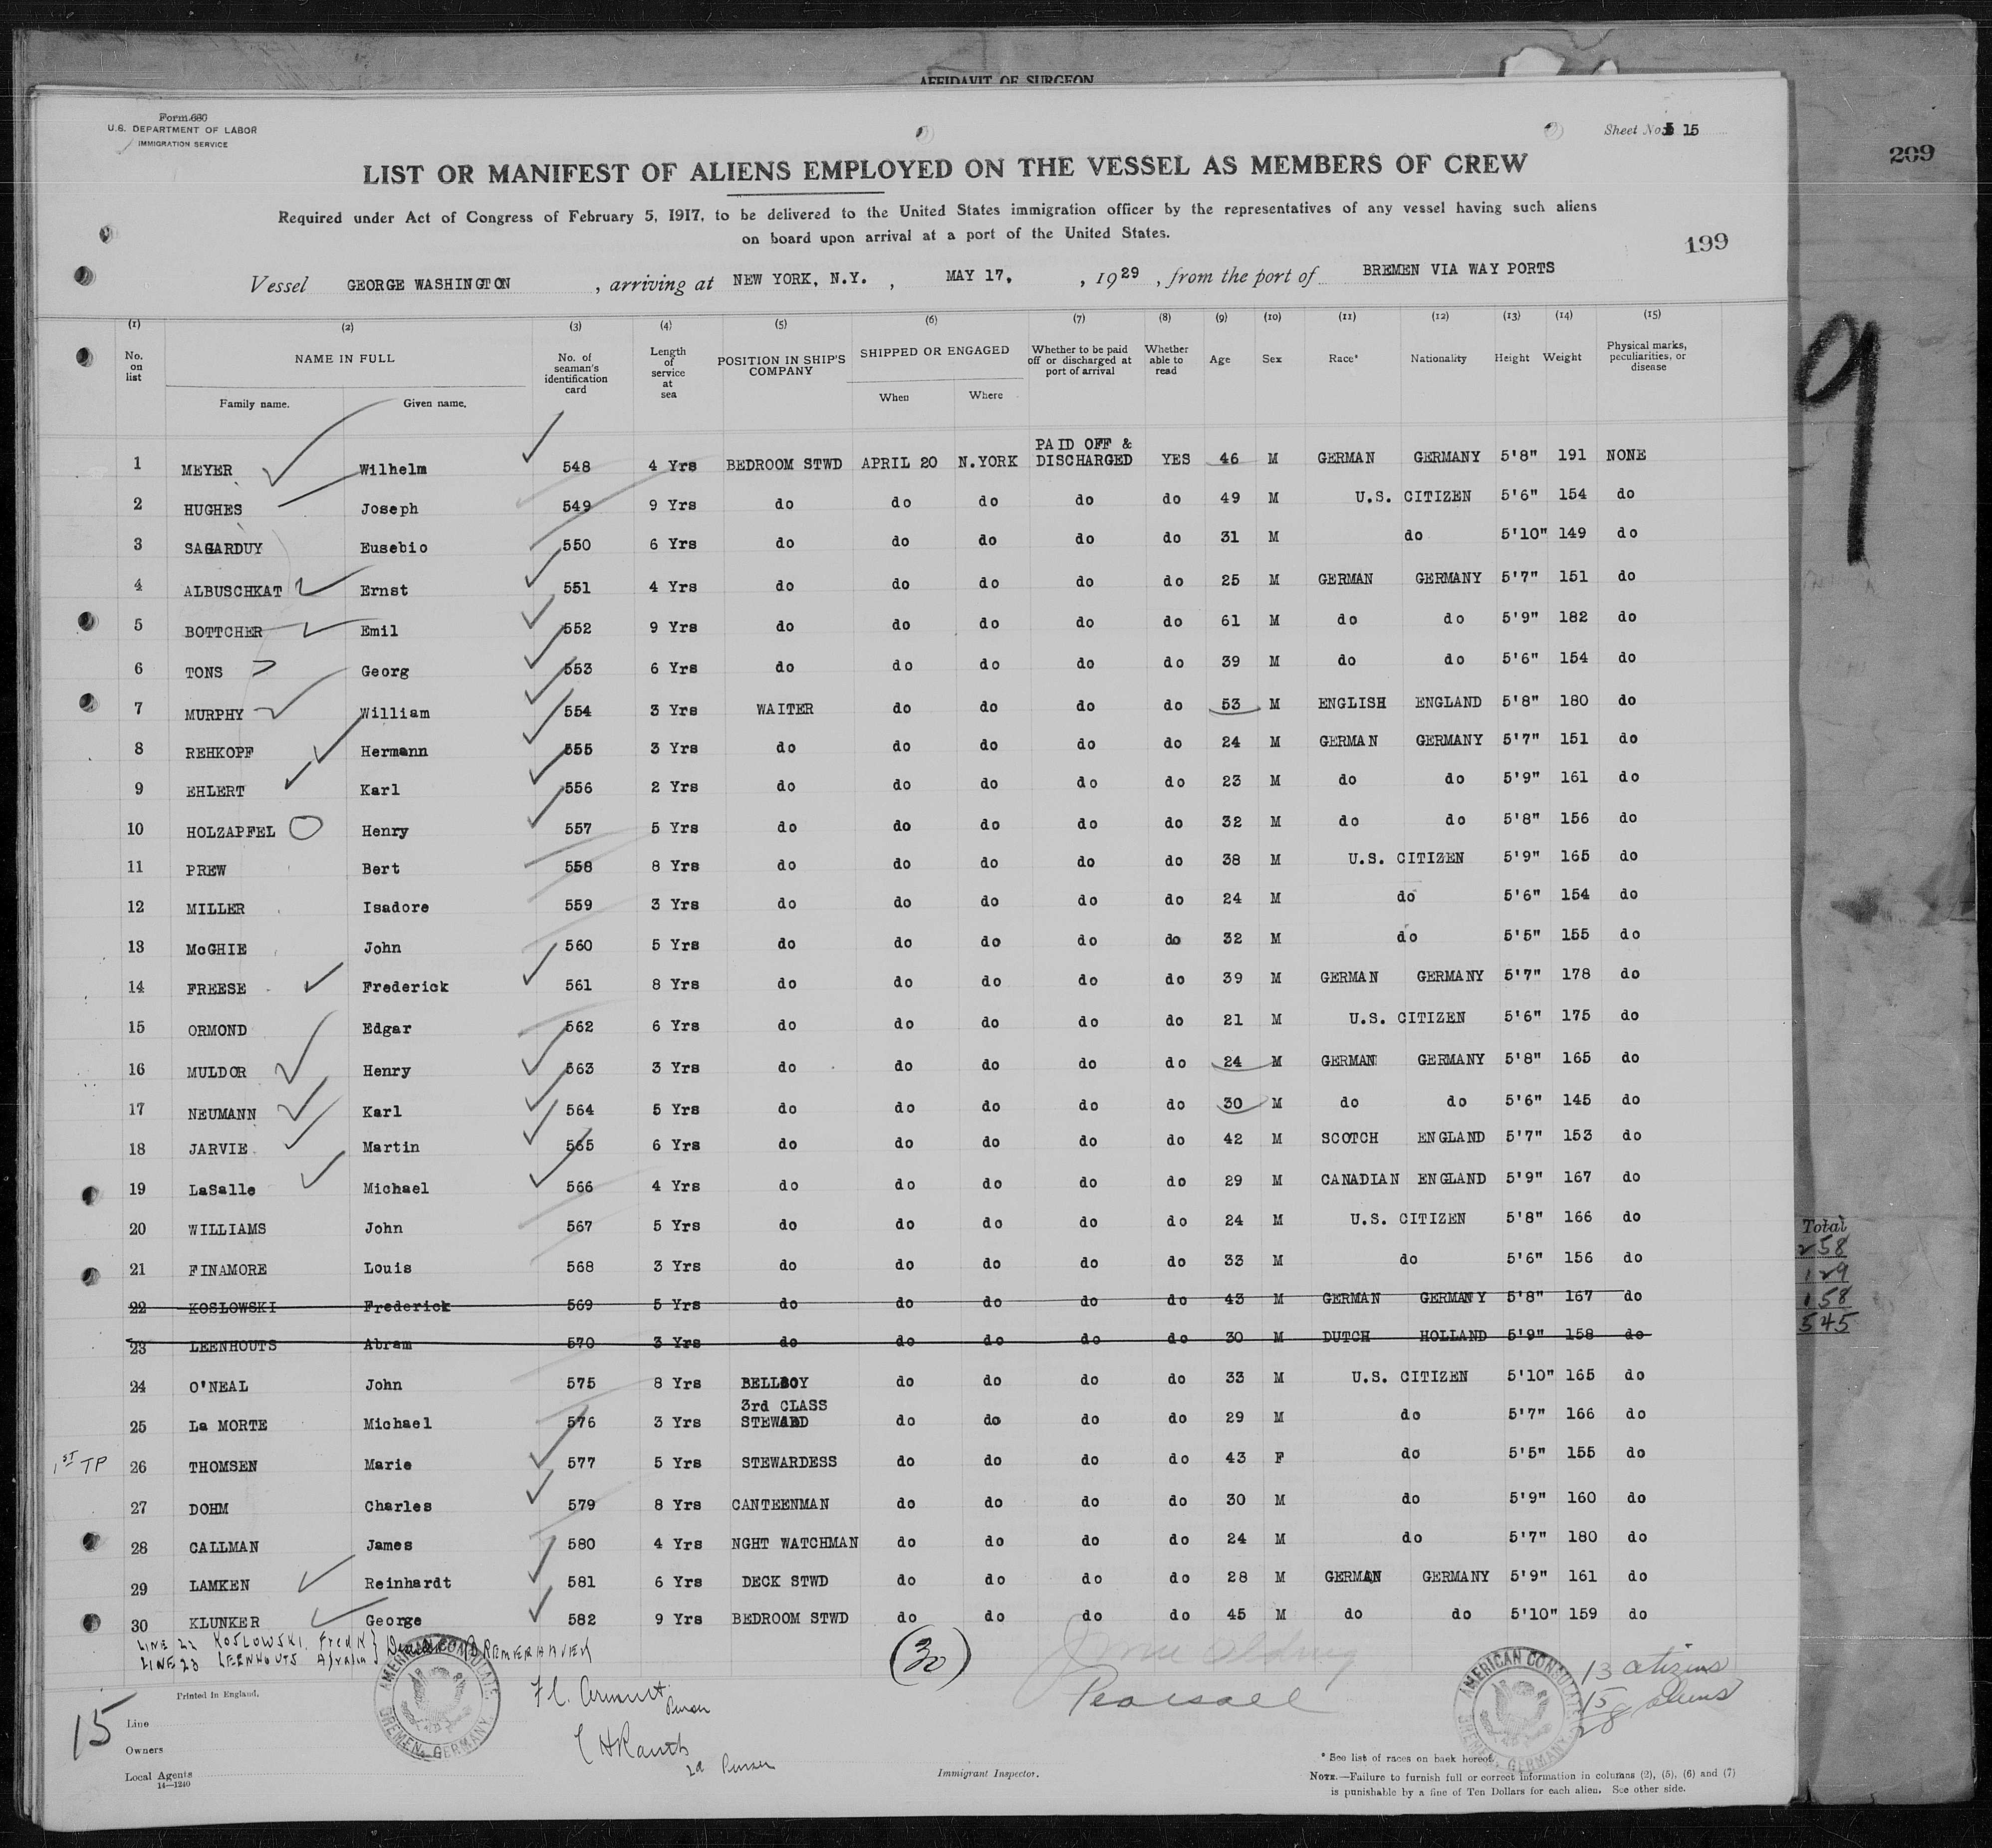 AFFIDAVIT OF SURGEON
Form 680
U.S. DEPARTMENT OF LABOR
IMMIGRATION SERVICE
Sheet No. 15
209
LIST OR MANIFEST OF ALIENS EMPLOYED ON THE VESSEL AS MEMBERS OF CREW
Required under Act of Congress of February 5, 1917, to be delivered to the United States immigration officer by the representatives of any vessel having such aliens
on board upon arrival at a port of the United States.
199
Vessel GEORGE WASHINGTON , arriving at NEW YORK, N.Y. , MAY 17, , 1929 , from the port of BREMEN VIA WAY PORTS
(1) (2) (3) (4) (5) (6) (7) (8) (9) (10) (11) (12) (13) (14) (15)
No. on list NAME IN FULL No. of seaman's identification card Length of service at sea POSITION IN SHIP'S COMPANY SHIPPED OR ENGAGED Whether to be paid off or discharged at port of arrival Whether able to read Age Sex Race* Nationality Height Weight Physical marks, peculiarities, or disease
Family name. Given name. When Where
1 MEYER Wilhelm 548 4 Yrs BEDROOM STWD APRIL 20 N.YORK PAID OFF & DISCHARGED YES 46 M GERMAN GERMANY 5'8" 191 NONE
2 HUGHES Joseph 549 9 Yrs do do do do do 49 M U.S. CITIZEN 5'6" 154 do
3 SAGARDUY Eusebio 550 6 Yrs do do do do do 31 M do 5'10" 149 do
4 ALBUSCHKAT Ernst 551 4 Yrs do do do do do 25 M GERMAN GERMANY 5'7" 151 do
5 BOTTCHER Emil 552 9 Yrs do do do do do 61 M do do 5'9" 182 do
6 TONS Georg 553 6 Yrs do do do do do 39 M do do 5'6" 154 do
7 MURPHY William 554 3 Yrs WAITER do do do do 53 M ENGLISH ENGLAND 5'8" 180 do
8 REHKOPF Hermann 555 3 Yrs do do do do do 24 M GERMAN GERMANY 5'7" 151 do
9 EHLERT Karl 556 2 Yrs do do do do do 23 M do do 5'9" 161 do
10 HOLZAPFEL Henry 557 5 Yrs do do do do do 32 M do do 5'8" 156 do
11 PREW Bert 558 8 Yrs do do do do do 38 M U.S. CITIZEN 5'9" 165 do
12 MILLER Isadore 559 3 Yrs do do do do do 24 M do 5'6" 154 do
13 McGHIE John 560 5 Yrs do do do do do 32 M do 5'5" 155 do
14 FREESE Frederick 561 8 Yrs do do do do do 39 M GERMAN GERMANY 5'7" 178 do
15 ORMOND Edgar 562 6 Yrs do do do do do 21 M U.S. CITIZEN 5'6" 175 do
16 MULDOR Henry 563 3 Yrs do do do do do 24 M GERMAN GERMANY 5'8" 165 do
17 NEUMANN Karl 564 5 Yrs do do do do do 30 M do do 5'6" 145 do
18 JARVIE Martin 565 6 Yrs do do do do do 42 M SCOTCH ENGLAND 5'7" 153 do
19 LaSalle Michael 566 4 Yrs do do do do do 29 M CANADIAN ENGLAND 5'9" 167 do
20 WILLIAMS John 567 5 Yrs do do do do do 24 M U.S. CITIZEN 5'8" 166 do
21 FINAMORE Louis 568 3 Yrs do do do do do 33 M do 5'6" 156 do
22 KOSLOWSKI Frederick 569 5 Yrs do do do do do 43 M GERMAN GERMANY 5'8" 167 do
23 LEENHOUTS Abram 570 3 Yrs do do do do do 30 M DUTCH HOLLAND 5'9" 158 do
24 O'NEAL John 575 8 Yrs BELLBOY do do do do 33 M U.S. CITIZEN 5'10" 165 do
25 La MORTE Michael 576 3 Yrs 3rd CLASS STEWARD do do do do 29 M do 5'7" 166 do
1ST TP 26 THOMSEN Marie 577 5 Yrs STEWARDESS do do do do 43 F do 5'5" 155 do
27 DOHM Charles 579 8 Yrs CANTEENMAN do do do do 30 M do 5'9" 160 do
28 CALLMAN James 580 4 Yrs NGHT WATCHMAN do do do do 24 M do 5'7" 180 do
29 LAMKEN Reinhardt 581 6 Yrs DECK STWD do do do do 28 M GERMAN GERMANY 5'9" 161 do
30 KLUNKER George 582 9 Yrs BEDROOM STWD do do do do 45 M do do 5'10" 159 do
Total
258
129
158
545
LINE 22 KOSLOWSKI, Fredk
LINE 23 LEENHOUTS Abram BREMERHAVEN
(30)
AMERICAN CONSULATE, BREMEN, GERMANY.
AMERICAN CONSULATE, BREMEN, GERMANY.
13 citizens
15 aliens
28
Pearsall
Purser
2d Purser
15
Printed in England.
Line
Owners
Local Agents
14—1240
Immigrant Inspector.
* See list of races on back hereof.
NOTE.—Failure to furnish full or correct information in columns (2), (5), (6) and (7)
is punishable by a fine of Ten Dollars for each alien. See other side.